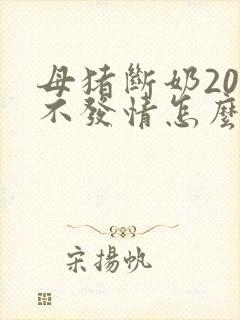 母猪斷奶20
不發情怎麼
宋揚帆